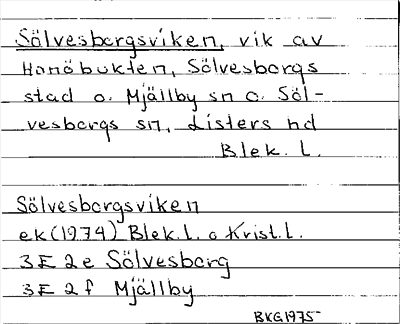 Sölvesborgsviken, vik av
Hanöbukten, Sölvesborgs
stad o. Mjällby sn o. Söl-
vesborgs sn, Listers hd
Blek. l.
Sölvesborgsviken
ek (1974) Blek. l. o Krist. l.
3E 2e Sölvesborg
3E 2f Mjällby
BKG1975